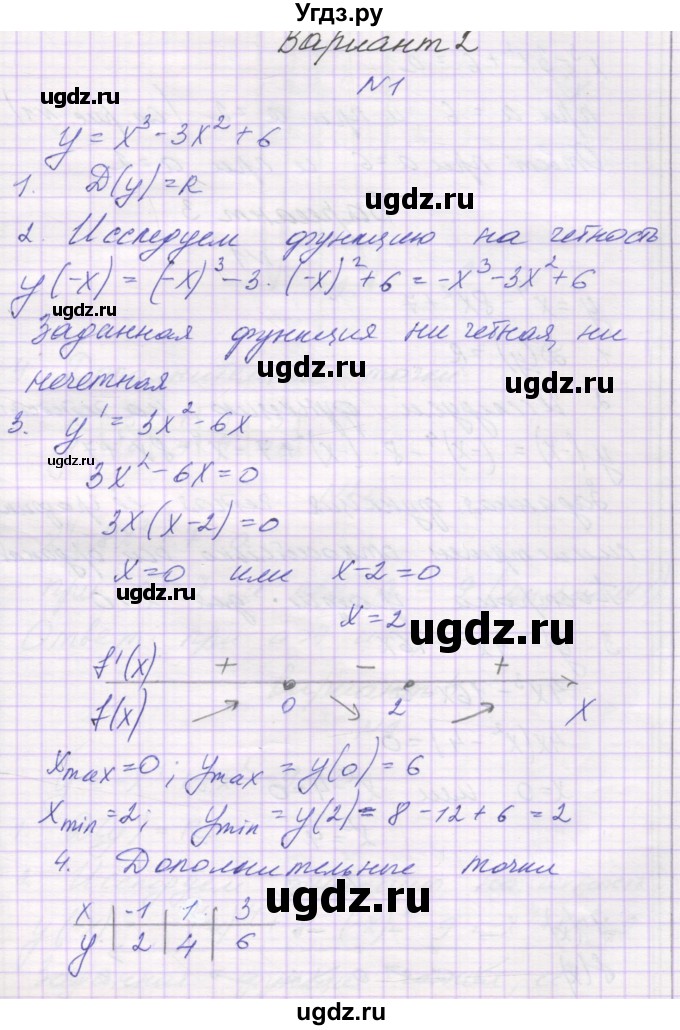 Угдз.ру
Вариант 2
ugdz.ru
№1
y = x³ - 3x² + 6
ugdz.ru
1. D(y) = R
ugdz.ru
2. Исследуем функцию на четность
y(-x) = (-x)³ - 3·(-x)² + 6 = -x³ - 3x² + 6
ugdz.ru
Заданная функция ни четная, ни
ugdz.ru
нечетная
ugdz.ru
3. y' = 3x² - 6x
3x² - 6x = 0
ugdz.ru
3x(x-2) = 0
x = 0 или x-2 = 0
ugdz.ru
x = 2
ugdz.ru
f'(x) + - +
f(x) 0 2 x
ugdz.ru
xmax = 0; ymax = y(0) = 6
ugdz.ru
xmin = 2; ymin = y(2) = 8 - 12 + 6 = 2
4. Дополнительные точки
ugdz.ru
x | -1 | 1 | 3
y | 2 | 4 | 6
ugdz.ru
ugdz.ru